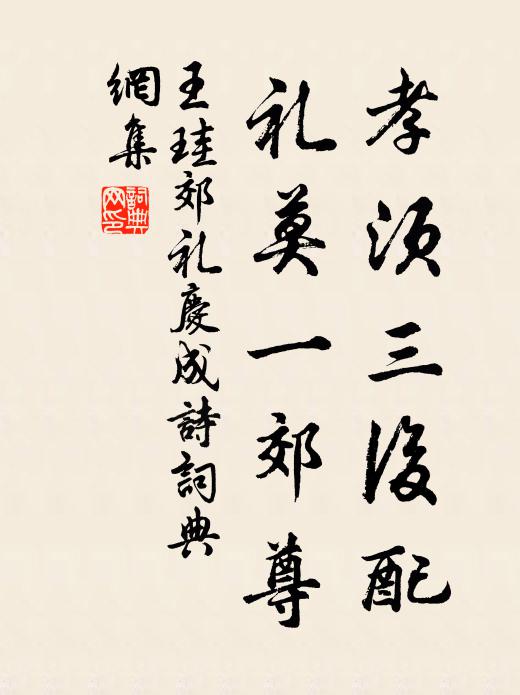 孝須三後配
礼莫一郊尊
王珪郊礼慶成詩詞典
網集
詞典網印